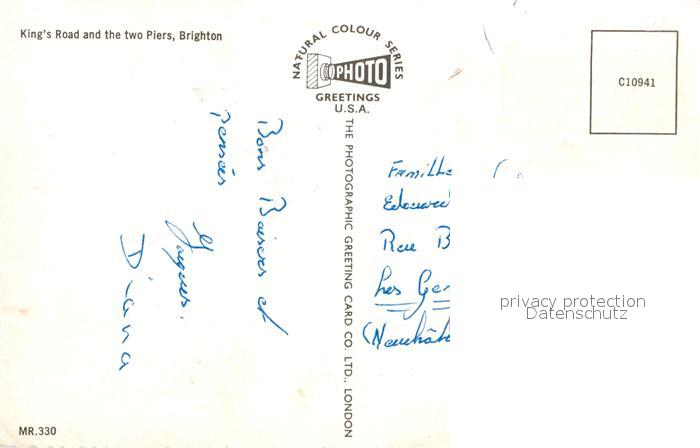 King's Road and the two Piers, Brighton
NATURAL COLOUR SERIES
PHOTO
GREETINGS
U.S.A.
C10941
Bons Baisers et
Pensées
Jacques.
Diana
THE PHOTOGRAPHIC GREETING CARD CO. LTD., LONDON
Famille
Edouard
Rue B
Les Gen
(Neuchât
privacy protection
Datenschutz
MR.330